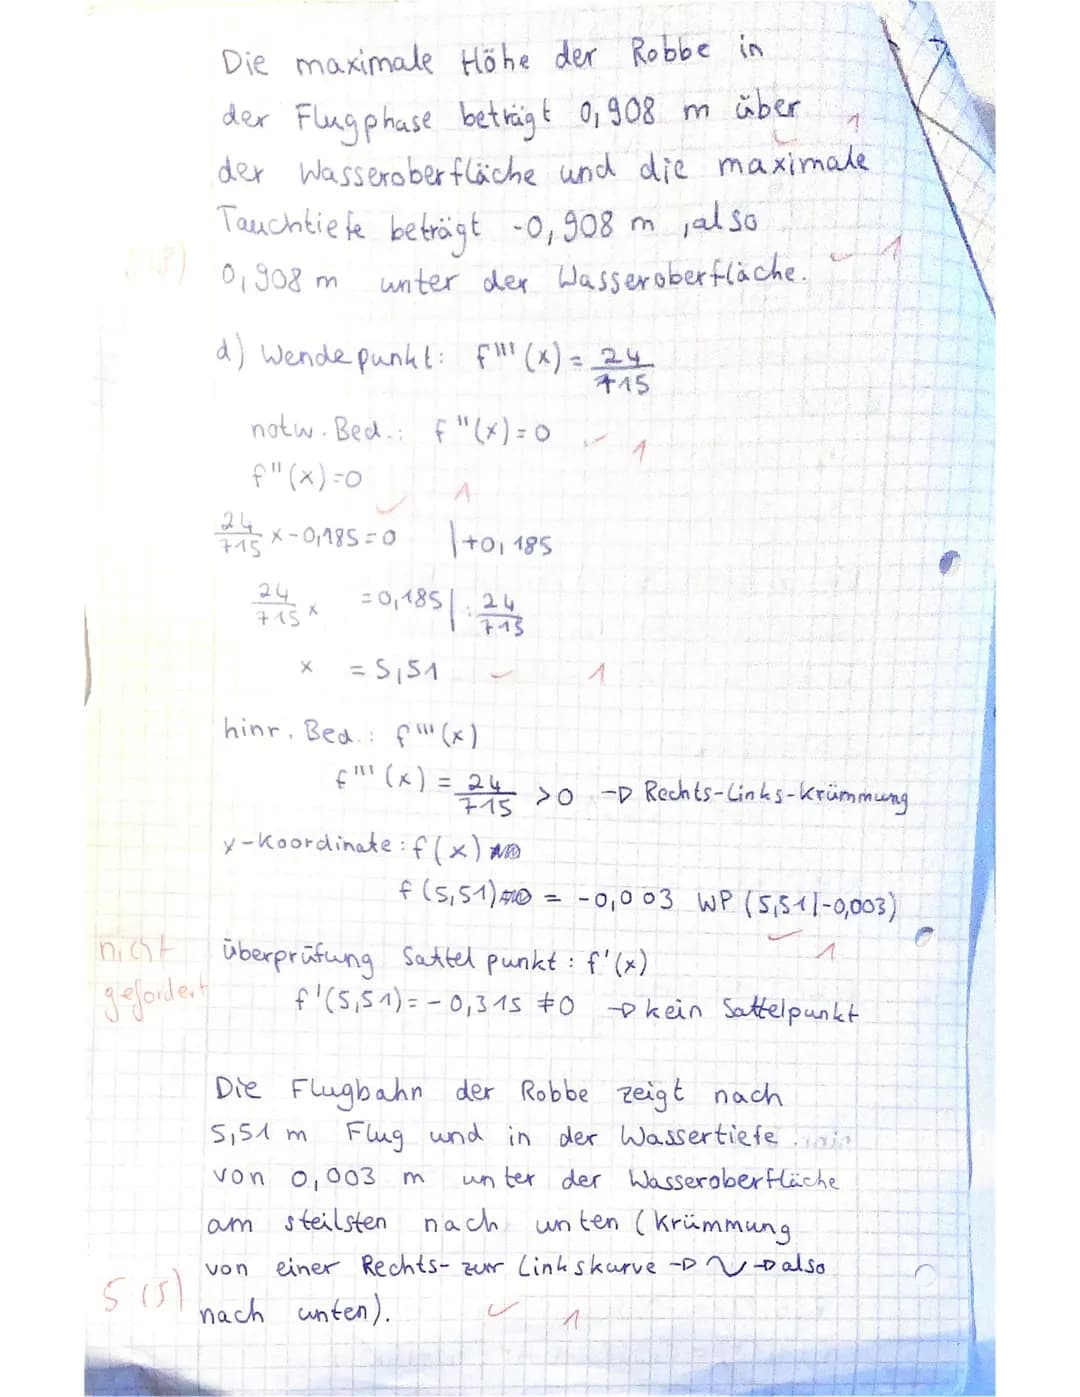 Die maximale Höhe der Robbe in
der Flugphase beträgt 0,908 m über
1
der Wasseroberfläche und die maximale
Tauchtiefe beträgt -0,908 m, also
0,908 m unter der Wasseroberfläche. 1
d) Wendepunkt: f'''(x) = 24/715
notw. Bed.: f''(x)=0 1
f''(x)=0
24/715 x - 0,185 = 0 |+0,185 1
24/715 x = 0,185 | : 24/715
x = 5,51 1
hinr. Bed.: f'''(x)
f'''(x) = 24/715 >0 → Rechts-Links-Krümmung
y-Koordinate: f(x)
f(5,51) = -0,003 WP (5,51|-0,003)
1
nicht gefordert
überprüfung Sattelpunkt: f'(x)
f'(5,51) = -0,315 ≠0 → kein Sattelpunkt
Die Flugbahn der Robbe zeigt nach
5,51 m Flug und in der Wassertiefe
von 0,003 m unter der Wasseroberfläche
am steilsten nach unten (Krümmung
von einer Rechts- zur Linkskurve → → also
5 (5)
nach unten). 1